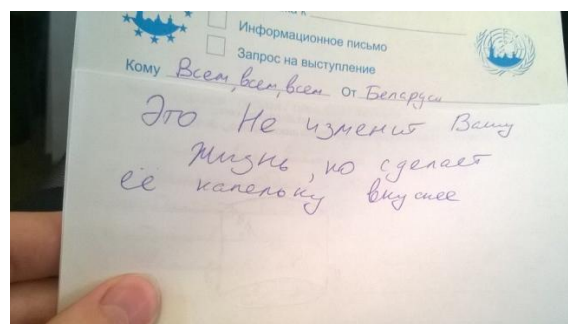 Информационное письмо
Запрос на выступление
Кому Всем, всем, всем от Беларуси
Это Не изменит Вашу
жизнь, но сделает
её капельку вкуснее